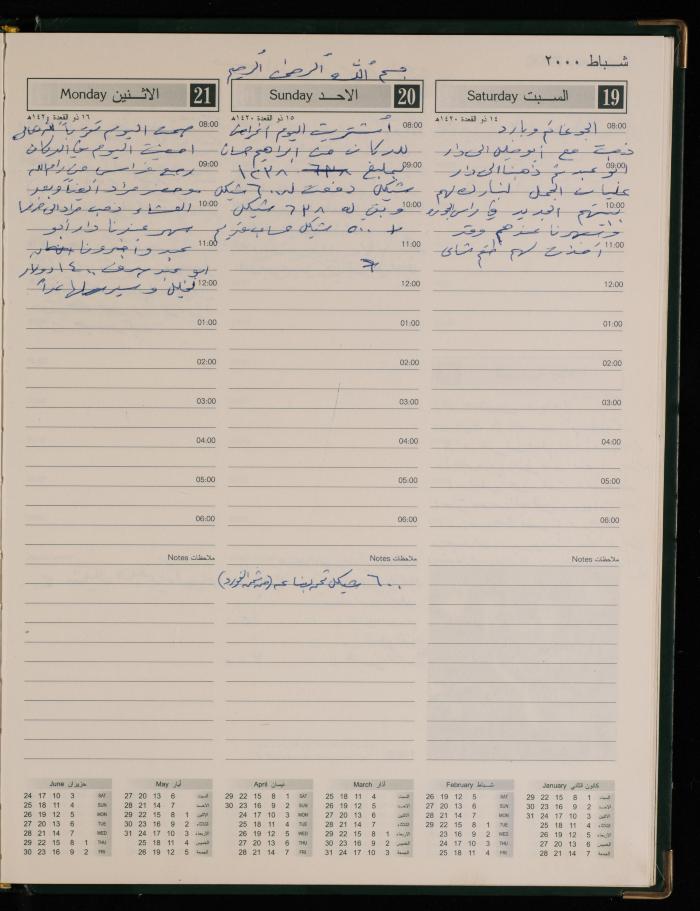 شباط ٢٠٠٠
بسم الله الرحمن الرحيم
السبت Saturday 19
١٤ ذو القعدة ١٤٢٠هـ
08:00 الجو غائم وبارد
ذهبت مع أبو خليل الى دار
09:00 أبو عبد ثم ذهبنا الى دار
لنبارك لهم
10:00 بيتهم الجديد في رأس
وسهرنا عندهم وقد
11:00 أخذت لهم طقم شاي
12:00
01:00
02:00
03:00
04:00
05:00
06:00
ملاحظات Notes
الاحد Sunday 20
١٥ ذو القعدة ١٤٢٠هـ
08:00 أشتريت اليوم أغراض
للدكان من ابراهيم حسان
09:00 بمبلغ ١٢٣٨
شيكل دفعت له ٦٠٠ شيكل
10:00 وبقي له ٦٣٨ شيكل
٥٠٠ شيكل حساب قديم
11:00
12:00
01:00
02:00
03:00
04:00
05:00
06:00
ملاحظات Notes
٦٠٠ شيكل ثمن بضاعة (من ثمن الفورد)
الاثنين Monday 21
١٦ ذو القعدة ١٤٢٠هـ
08:00 صمت اليوم تقرباً لله تعالى
أمضيت اليوم في الدكان
09:00 رجع فراس من رام الله
وحضر مراد أيضاً وبعد
10:00 العشاء ذهب مراد الى
سهر عندنا دار أبو
11:00 عبد وأخبرونا
أبو عبد صرف ١٤٠٠ دولار
12:00 لخليل وسيرسلها غداً
01:00
02:00
03:00
04:00
05:00
06:00
ملاحظات Notes
كانون الثاني January
السبت 1 8 15 22 29
الاحد 2 9 16 23 30
الاثنين 3 10 17 24 31
الثلاثاء 4 11 18 25
الاربعاء 5 12 19 26
الخميس 6 13 20 27
الجمعة 7 14 21 28
شباط February
SAT 5 12 19 26
SUN 6 13 20 27
MON 7 14 21 28
TUE 1 8 15 22 29
WED 2 9 16 23
THU 3 10 17 24
FRI 4 11 18 25
آذار March
السبت 4 11 18 25
الاحد 5 12 19 26
الاثنين 6 13 20 27
الثلاثاء 7 14 21 28
الاربعاء 1 8 15 22 29
الخميس 2 9 16 23 30
الجمعة 3 10 17 24 31
نيسان April
SAT 1 8 15 22 29
SUN 2 9 16 23 30
MON 3 10 17 24
TUE 4 11 18 25
WED 5 12 19 26
THU 6 13 20 27
FRI 7 14 21 28
أيار May
السبت 6 13 20 27
الاحد 7 14 21 28
الاثنين 1 8 15 22 29
الثلاثاء 2 9 16 23 30
الاربعاء 3 10 17 24 31
الخميس 4 11 18 25
الجمعة 5 12 19 26
حزيران June
SAT 3 10 17 24
SUN 4 11 18 25
MON 5 12 19 26
TUE 6 13 20 27
WED 7 14 21 28
THU 1 8 15 22 29
FRI 2 9 16 23 30